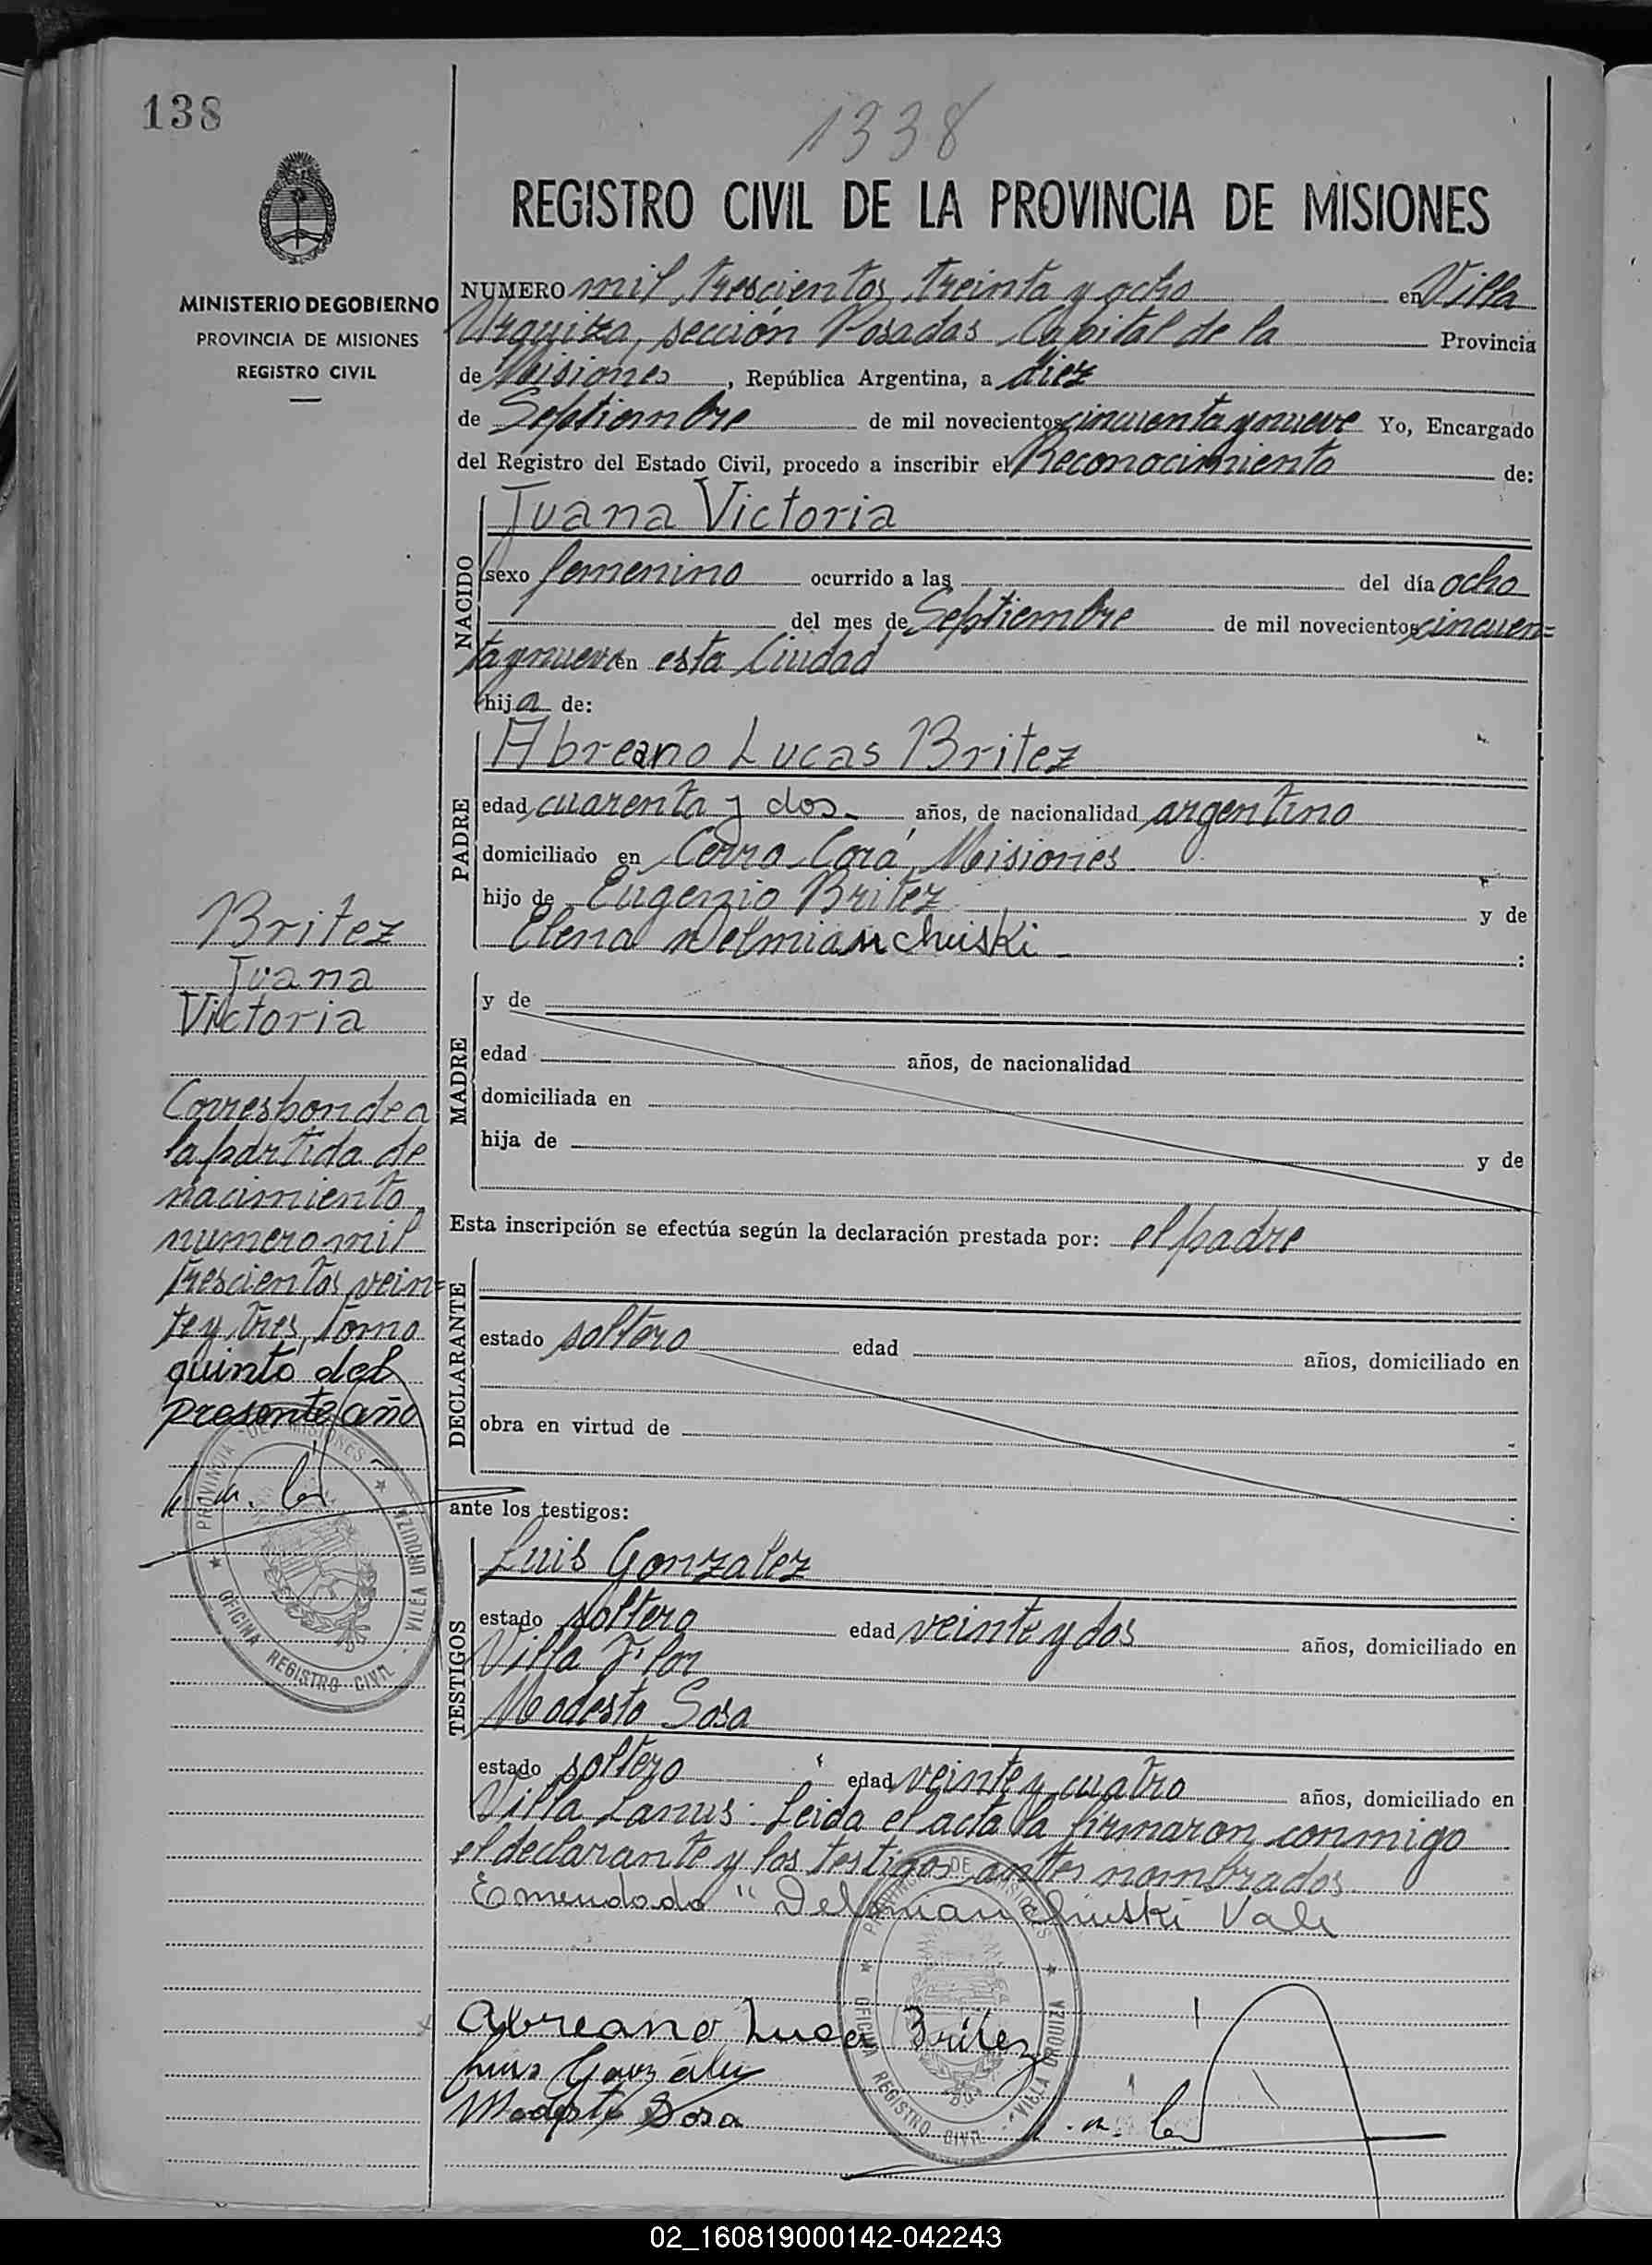 138
1338
REGISTRO CIVIL DE LA PROVINCIA DE MISIONES
MINISTERIO DE GOBIERNO
PROVINCIA DE MISIONES
REGISTRO CIVIL
NUMERO mil trescientos treinta y ocho en Villa
Urquiza, sección Posadas Capital de la Provincia
de Misiones, República Argentina, a diez
de Septiembre de mil novecientos cincuenta y nueve Yo, Encargado
del Registro del Estado Civil, procedo a inscribir el Reconocimiento de:
NACIDO
Juana Victoria
sexo femenino ocurrido a las del día ocho
del mes de Septiembre de mil novecientos cincuen=
ta y nueve en esta Ciudad
hija de:
PADRE
Abreano Lucas Britez
edad cuarenta y dos años, de nacionalidad argentino
domiciliado en Cerro Corá Misiones
hijo de Eugenio Britez y de
Elena Delmianchuiski
Britez
Juana
Victoria
Corresponde a
la partida de
nacimiento
numero mil
trescientos vein=
te y tres, tomo
quinto del
presente año
PROVINCIA DE MISIONES
OFICINA REGISTRO CIVIL
VILLA URQUIZA
MADRE
y de
edad años, de nacionalidad
domiciliada en
hija de y de
Esta inscripción se efectúa según la declaración prestada por: el padre
DECLARANTE
estado soltero edad años, domiciliado en
obra en virtud de
ante los testigos:
TESTIGOS
Luis Gonzalez
estado soltero edad veinte y dos años, domiciliado en
Villa Flor
Modesto Sosa
estado soltero edad veinte y cuatro años, domiciliado en
Villa Lanus: Leida el acta la firmaron conmigo
el declarante y los testigos antes nombrados
Enmendado "Delmianchuiski Vale
Abreano Lucas Britez
Luis González
Modesto Sosa
PROVINCIA DE MISIONES
OFICINA REGISTRO CIVIL
VILLA URQUIZA
02_160819000142-042243